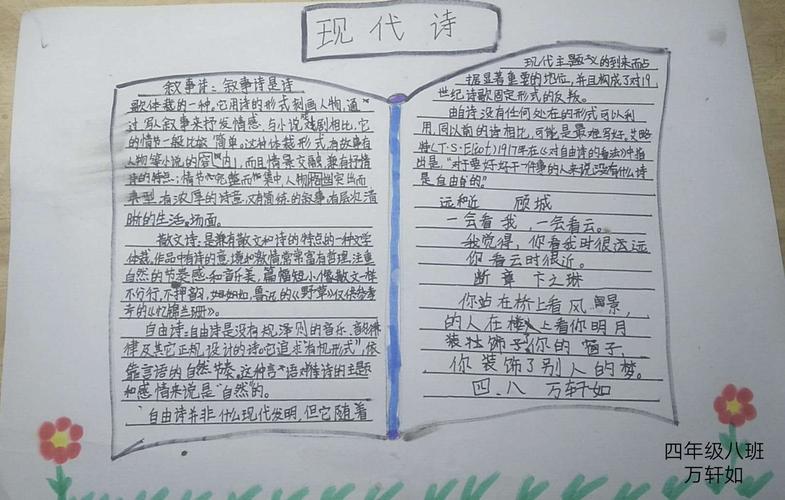 现代诗
叙事诗：叙事诗是诗
歌体裁的一种。它用诗的形式刻画人物，通
过写人叙事来抒发情感，与小说戏剧相比，它
的情节一般比较简单。这种体裁形式有故事有
人物像小说的容内，而且情景交融，兼有抒情
诗的特点；情节完整而集中，人物性格突出而
典型，有浓厚的诗意，又有简练的叙事，有层次清
晰的生活。场面。
散文诗：是兼有散文和诗的特点的一种文学
体裁。作品中有诗的意境和激情常常富有哲理，注重
自然的节奏感和音乐美，篇幅短小像散文一样
不分行，不押韵，如，鲁迅的《野草》
的《忆锦兰珊》。
自由诗：自由诗是没有规泽则的音乐、音
律及其它正规，设计的诗。它追求“有机形式”，依
靠言语的自然节奏。这种言语对诗的主题
和感情来说是“自然的。
“自由诗并非什么现代发明，但它随着
现代主题义的到来而占
据显著重要的地位，并且构成了对19
世纪诗歌固定形式的反叛。
由诗没有任何处在的形式可以利
用，同以前的诗相比，可能是最难写好，艾略
特（T·S·Eliot）1917年在《对自由诗的看法》中指
出是，“对于要好好干一件事的人来说，没有什么诗
是自由自的。”
远和近 顾城
一会看我，一会看云。
我觉得，你看我时很远远
你看云时很近。
断章 卞之琳
你站在桥上看风景，
的人在楼上看你明月
装壮饰子你的窗子，
你装饰了别人的梦。
四.八 万轩如
四年级八班
万轩如